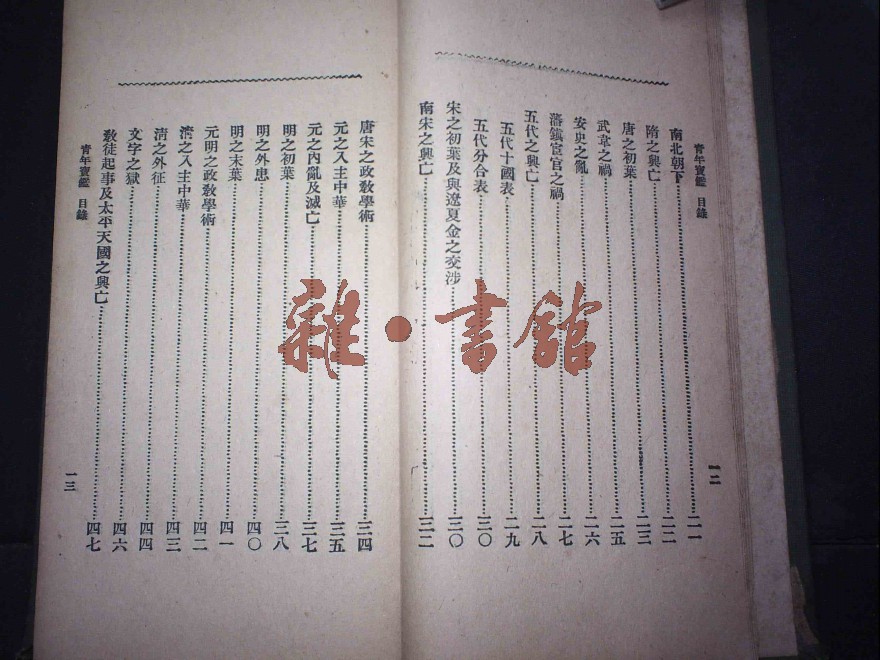 青年寶鑑 目錄
南北朝下……二一
隋之興亡……二二
唐之初葉……二三
武韋之禍……二五
安史之亂……二六
藩鎮宦官之禍……二七
五代之興亡……二八
五代十國表……二九
五代分合表……三〇
宋之初葉及與遼夏金之交涉……三〇
南宋之興亡……三二
一二
唐宋之政敎學術……三四
元之入主中華……三五
元之內亂及滅亡……三七
明之初葉……三八
明之外患……四〇
明之末葉……四一
元明之政敎學術……四二
淸之入主中華……四三
淸之外征……四四
文字之獄……四六
敎徒起事及太平天國之興亡……四七
青年寶鑑 目錄
一三
雜·書館